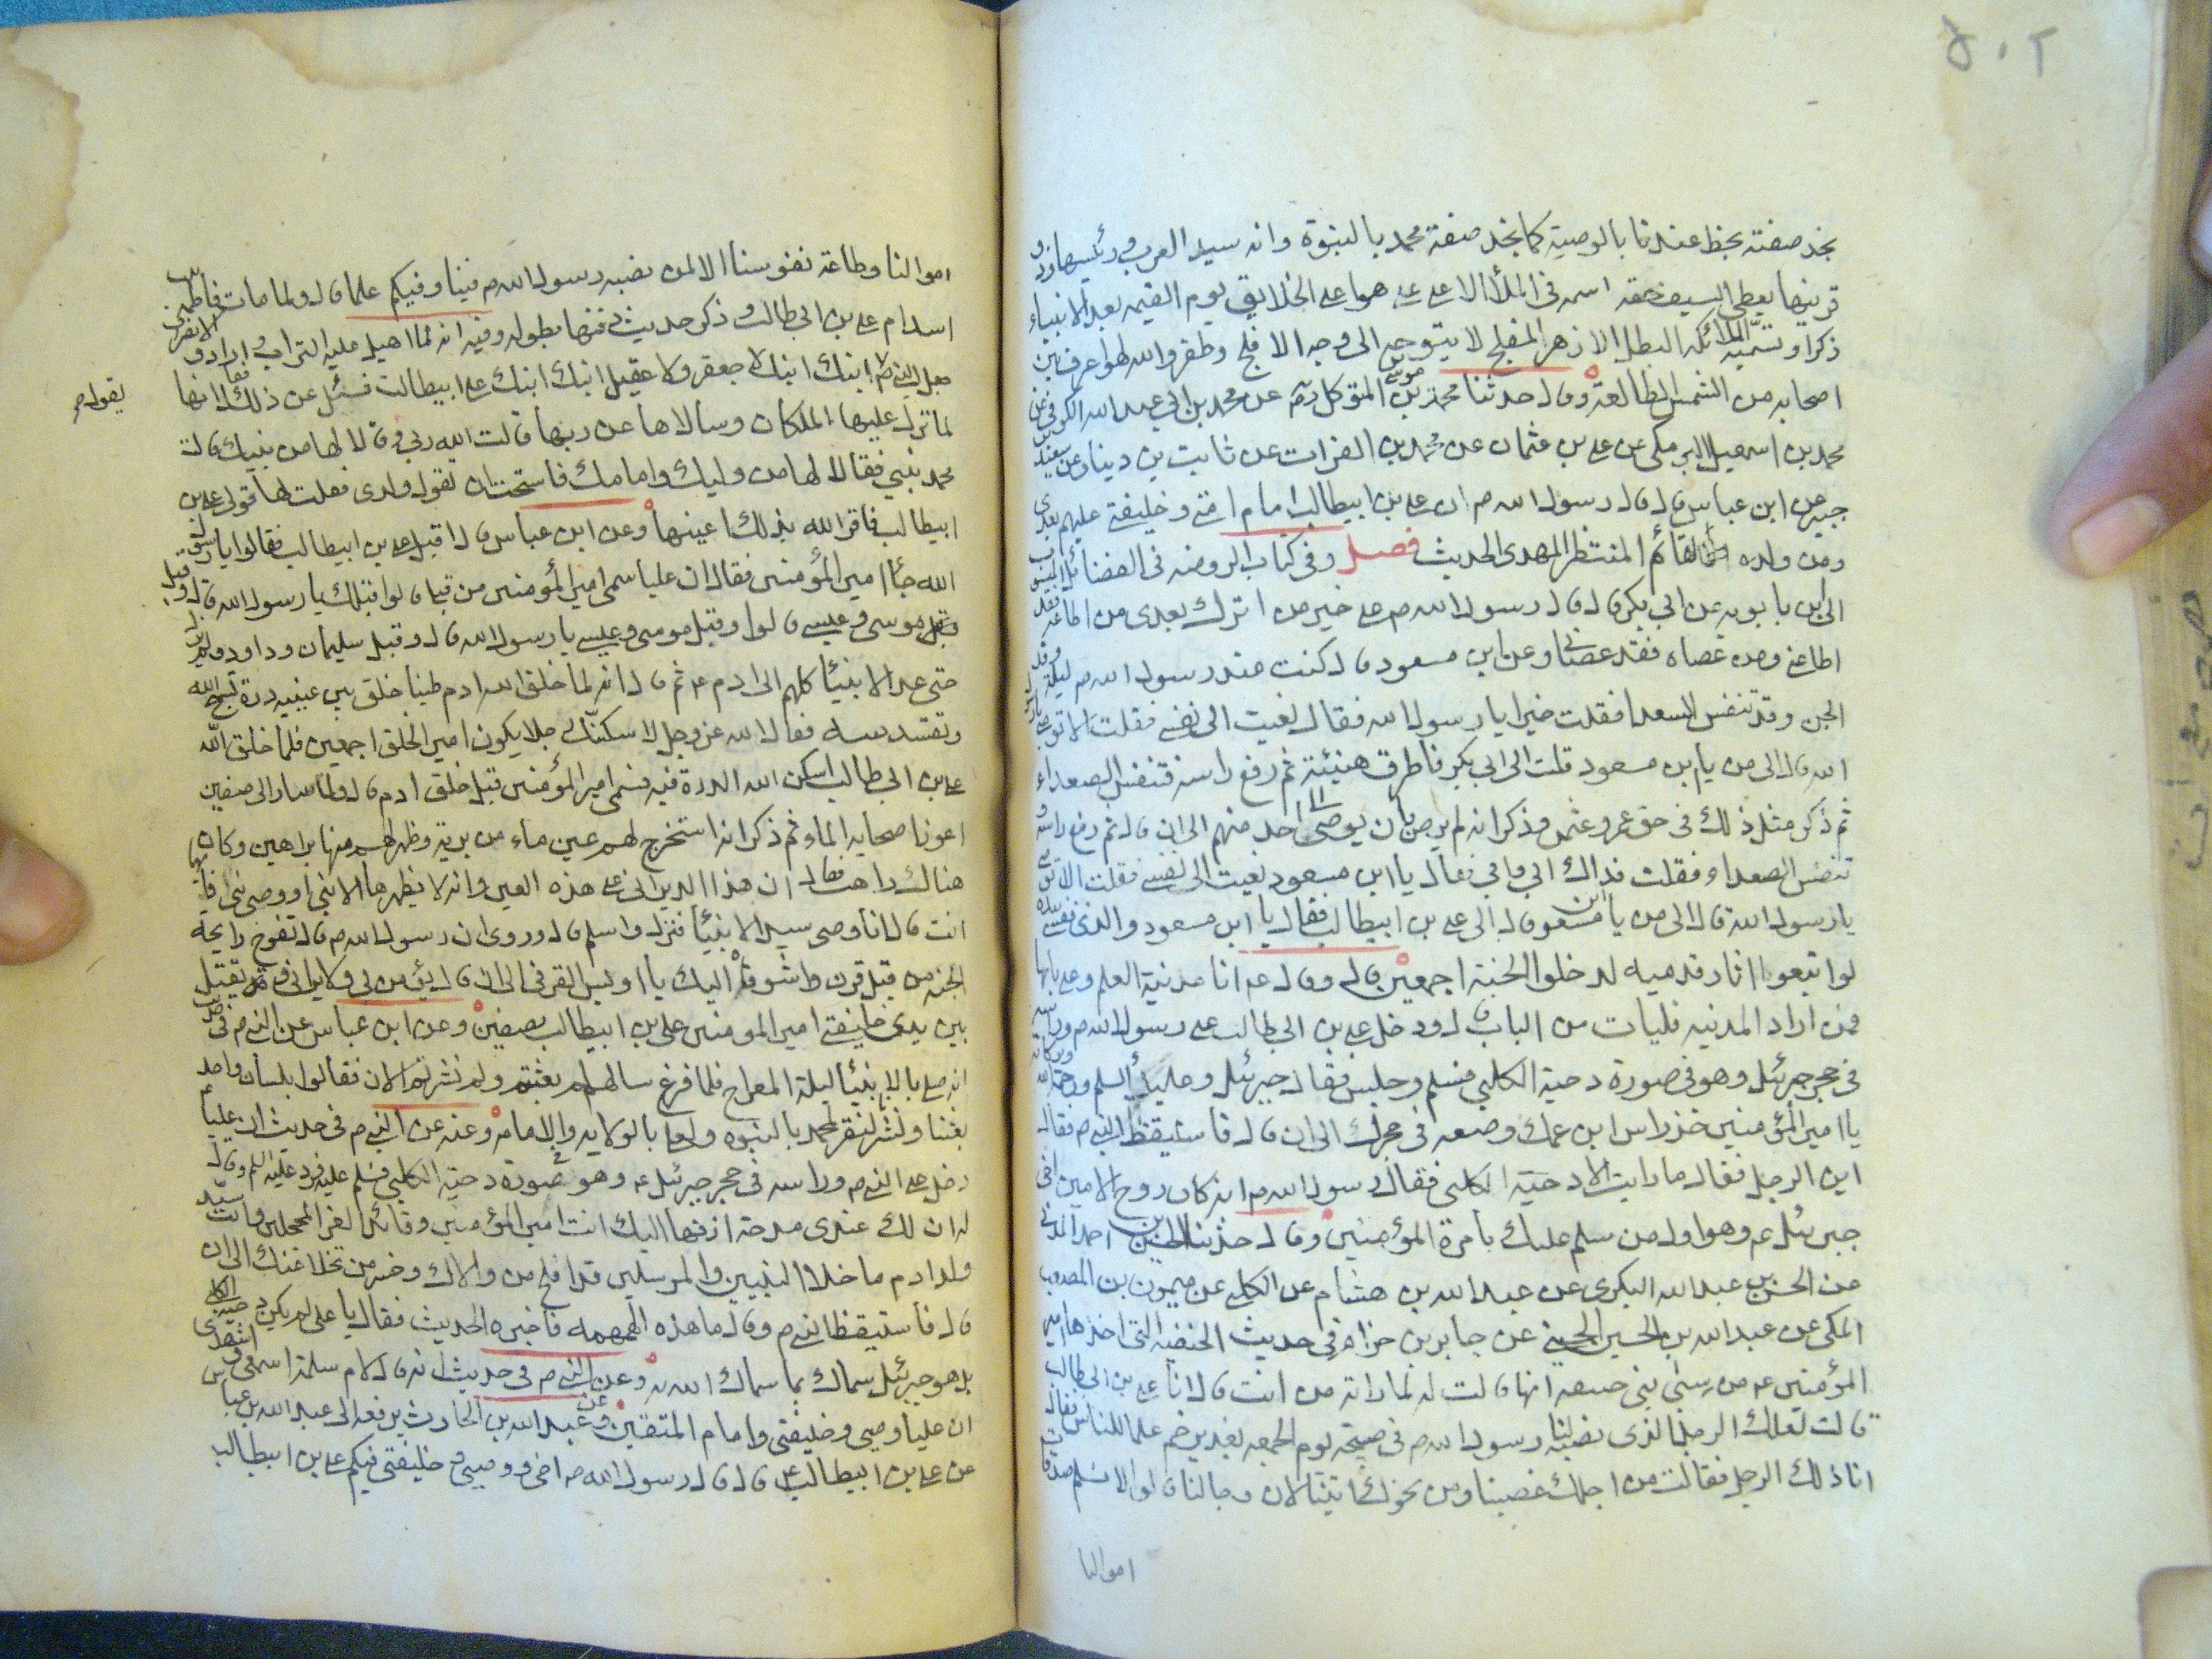 ٥٠٢
نجد صفته بحظ عندنا بالوصية كما نجد صفة محمد بالنبوة وانه سيد العرب ورئيسها وذو
قرنيها يعطى السيف حقه اسمه فى الملأ الاعلى على هو اعلى الخلايق يوم القيمه بعد الانبياء
ذكرا وتسميه الملائكه البطل الازهر المفلج لا يتوجه الى وجه الا فلج وظفر والله لهو اعرف بين
اصحابه من الشمس الطالعة وقال حدثنا محمد بن موسى المتوكل ره عن محمد بن ابي عبد الله الكوفي عن
محمد بن اسمعيل البرمكى عن على بن عثمان عن محمد بن الفرات عن ثابت بن دينار عن سعيد بن
جبير عن ابن عباس قال قال رسول الله ص ان على بن ابيطالب امام امتى وخليفتى عليهم بعدى
ومن ولده القائم المنتظر المهدى الحديث فصل وفى كتاب الروضه فى الفضائل المنسوب
الى ابن بابويه عن ابي بكر قال قال رسول الله ص على خير من اترك بعدى من اطاعه فقد
اطاعنى ومن عصاه فقد عصانى وعن ابن مسعود قال كنت عند رسول الله ص ليلة وفد
الجن وقد تنفس الصعدا فقلت خيرا يا رسول الله فقال نعيت الى نفسى فقلت الا توصى يا رسول
الله قال الى من يا بن مسعود قلت الى ابي بكر فاطرق هنيئة ثم رفع راسه فتنفس الصعداء
ثم ذكر مثل ذلك فى حق عمر وعثمن وذكر انه لم يرض بان يوصى الى احد منهم الى ان قال ثم رفع راسه و
تنفس الصعداء فقلت فداك ابي وامي فقال يا ابن مسعود نعيت الى نفسى فقلت الا توصى
يا رسول الله قال الى من يا ابن مسعود قال الى على بن ابيطالب فقال يا ابن مسعود والذى نفسى بيده
لو اتبعوا اثار قدميه لدخلوا الجنة اجمعين قال وقال ع انا مدينة العلم وعلى بابها
فمن اراد المدينه فليات من الباب قال ودخل على بن ابي طالب على رسول الله ص وراسه
فى حجر جبرئيل وهو فى صورة دحية الكلبي فسلم وجلس فقال جبرئيل وعليك السلم ورحمة الله وبركاته
يا امير المؤمنين خذ راس ابن عمك وضعه فى حجرك الى ان قال فاستيقظ النبي ص فقال
اين الرجل فقال ما رايت الا دحية الكلبى فقال رسول الله ص انه كان روح الامين اخى
جبرئيل ع وهو اول من سلم عليك بامرة المؤمنين وقال حدثنا الحسن بن احمد المدنى
عن الحسن بن عبد الله البكرى عن عبد الله بن هشام عن الكلبي عن ميمون بن المصعب
المكى عن عبد الله بن الحسين عن جابر بن حزام فى حديث الحنفيه التى اخذها امير
المؤمنين ع من سبى بنى حنيفه انها قالت له لما راته من انت قال انا على بن ابي طالب
قالت لعلك الرجل الذى نصبه لنا رسول الله ص فى صبيحة يوم الجمعه بغدير خم علما للناس فقال
انا ذلك الرجل فقالت من اجلك غصبنا ومن نحوك اتينا لان رجالنا قالوا لا نسلم صدقات
اموالنا
اموالنا وطاعة نفوسنا الا لمن نصبه رسول الله ص فينا وفيكم علما قال ولما مات فاطمة بنت
اسد ام على بن ابي طالب وذكر حديث دفنها بطوله وفيه انه لما اهيل عليه التراب وارادوا الانصراف
جعل النبي ص ابنك ابنك لا جعفر ولا عقيل ابنك ابنك على ابيطالب فسئل عن ذلك فقال انها
لما نزل عليها الملكان وسالاها عن ربها قالت الله ربي وقالا لها من نبيك قالت
محمد نبيي فقالا لها من وليك وامامك فاستحت ان تقول ولدى فقلت لها قولى على بن
ابيطالب فاقر الله بذلك عينها وعن ابن عباس قال اقبل على بن ابيطالب فقالوا يا رسول
الله جاء امير المؤمنين فقال ان عليا سمى امير المؤمنين من قبلى قالوا قبلك يا رسول الله قال وقبل
موسى وعيسى قالوا وقبل موسى وعيسى يا رسول الله قال وقبل سليمان وداود ولم يزل
حتى عد الانبياء كلهم الى ادم ع ثم قال انه لما خلق الله ادم طينا خلق بين عينيه درة تسبح الله
وتقدسه فقال الله عز وجل لاسكننك رجلا يكون امير الخلق اجمعين فلما خلق الله
على بن ابي طالب اسكن الله الدرة فيه فسمى امير المؤمنين قبل خلق ادم قال ولما سار الى صفين
اعوز اصحابه الماء ثم ذكر انه استخرج لهم عين ماء من بريه وظهر لهم منها براهين وكان
هناك راهب فقال ان هذا الدير بنى على هذه العين وانه لا يظهرها الا نبى او وصى نبى فايهما
انت قال انا وصى سيد الانبياء فنزل واسلم قال وروى ان رسول الله ص قال تفوح رايحة
الجنه من قبل قرن واشوقاه اليك يا اويس القرنى الى ان قال يؤمن بي ولا يرانى ويقتل
بين يدى خليفتى امير المومنين على بن ابيطالب بصفين وعن ابن عباس عن النبي ص فى حديث
انه صلى بالانبياء ليلة المعراج فلما فرغ سالهم بم بعثتم ولم نشرتم الان فقالوا بلسان واحد
بعثنا ونشرنا لنقر لمحمد بالنبوه ولعلى بالولايه والامامه وعنه عن النبي ص فى حديث ان عليا ع
دخل على النبي ص وراسه فى حجر جبرئيل ع وهو فى صورة دحية الكلبى فسلم عليه فرد عليه السلم وقال
له ان لك عندى مدحة ازفها اليك انت امير المؤمنين وقائد الغر المحجلين وانت سيد
ولد ادم ما خلا النبيين والمرسلين قد افلح من والاك وخسر من تخلا عنك الى ان
قال فاستيقظ النبي ص وقال ما هذه الهمهمه فاخبره الحديث فقال يا على لم يكن دحية الكلبي
بل هو جبرئيل سماك بما سماك الله به وعن النبي ص فى حديث انه قال لام سلمة اسمعى واشهدى
ان عليا وصيى وخليفتى وامام المتقين وعن عبد الله بن الحارث يرفعه الى عبد الله بن عباس
عن على بن ابيطالب ع قال قال رسول الله ص اخى ووصيى وخليفتى فيكم على بن ابيطالب
يقول ص